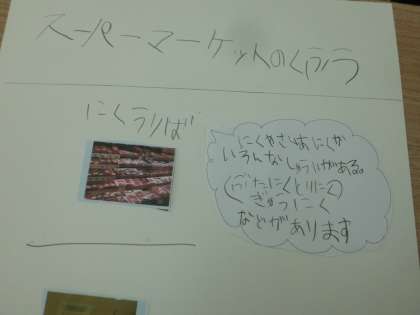 スーパーマーケットのくふう
にくうりば
にくやさんはにくが
いろんなしゅるいがある。
(ぶたにくとりにく
ぎゅうにく
などがあります